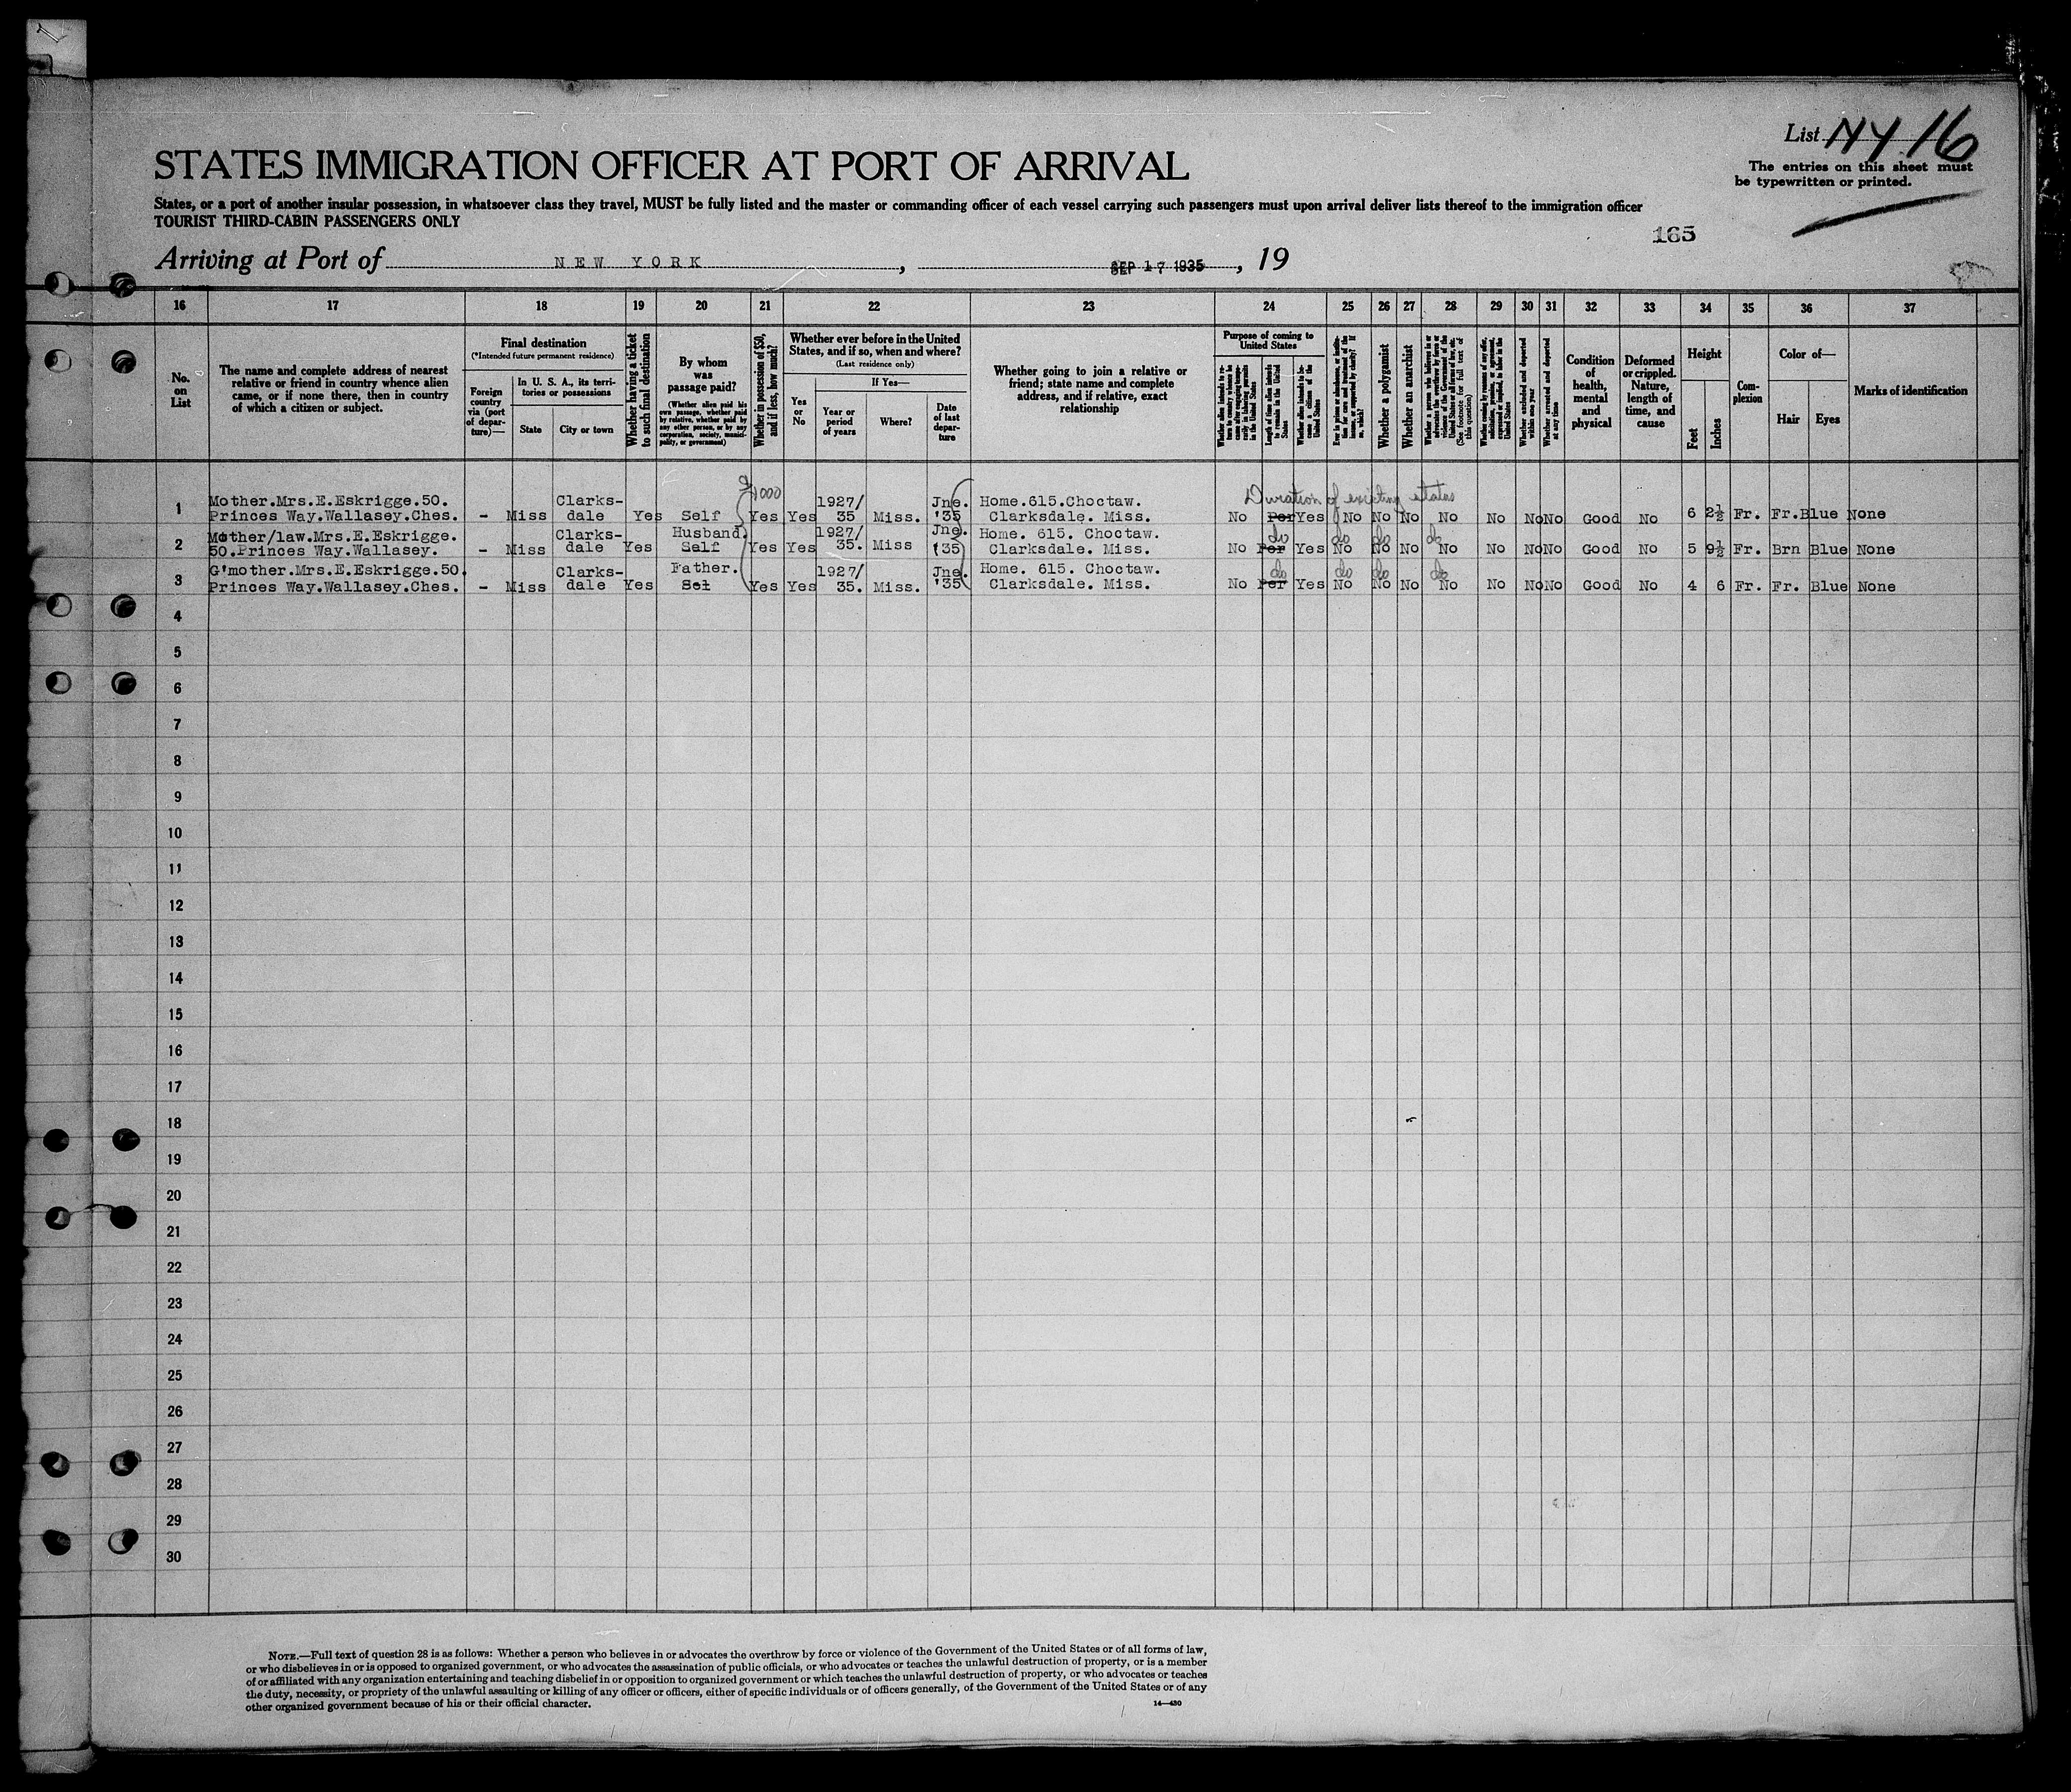 List NY 16
The entries on this sheet must
be typewritten or printed.
STATES IMMIGRATION OFFICER AT PORT OF ARRIVAL
States, or a port of another insular possession, in whatsoever class they travel, MUST be fully listed and the master or commanding officer of each vessel carrying such passengers must upon arrival deliver lists thereof to the immigration officer
TOURIST THIRD-CABIN PASSENGERS ONLY
165
Arriving at Port of NEW YORK, SEP 17 1935, 19
16 17 18 19 20 21 22 23 24 25 26 27 28 29 30 31 32 33 34 35 36 37
No.
on
List
The name and complete address of nearest
relative or friend in country whence alien
came, or if none there, then in country
of which a citizen or subject.
Final destination
(*Intended future permanent residence)
Foreign
country
via (port
of depar-
ture)—
In U. S. A., its terri-
tories or possessions
State
City or town
Whether having a ticket
to such final destination
By whom
was
passage paid?
(Whether alien paid his
own passage, whether paid
by relative, whether paid by
any other person, or by any
corporation, society, munici-
pality, or government)
Whether in possession of $50,
and if less, how much?
Whether ever before in the United
States, and if so, when and where?
(Last residence only)
Yes
or
No
If Yes—
Year or
period
of years
Where?
Date
of last
depar-
ture
Whether going to join a relative or
friend; state name and complete
address, and if relative, exact
relationship
Purpose of coming to
United States
Length of time alien intends
to remain in the United
States
Whether alien intends to be-
come a citizen of the
United States
Whether a polygamist
Whether an anarchist
(See footnote for full text of
this question)
Whether excluded and deported
within one year
Whether arrested and deported
at any time
Condition
of
health,
mental
and
physical
Deformed
or crippled.
Nature,
length of
time, and
cause
Height
Feet
Inches
Com-
plexion
Color of—
Hair
Eyes
Marks of identification
$1000
Duration of existing status
1 Mother.Mrs.E.Eskrigge.50. Clarks- 1927/ Jne. Home.615.Choctaw.
Princes Way.Wallasey.Ches. - Miss dale Yes Self Yes Yes 35 Miss. '35 Clarksdale. Miss. No Per Yes No No No No No No No Good No 6 2½ Fr. Fr. Blue None
2 Mother/law.Mrs.E.Eskrigge. Clarks- Husband. 1927/ Jne. Home. 615. Choctaw. do do do do
50.Princes Way.Wallasey. - Miss dale Yes Self Yes Yes 35. Miss '35 Clarksdale. Miss. No Per Yes No No No No No No No Good No 5 9½ Fr. Brn Blue None
3 G'mother.Mrs.E.Eskrigge.50 Clarks- Father. 1927/ Jne. Home. 615. Choctaw. do do do do
Princes Way.Wallasey.Ches. - Miss dale Yes Sel Yes Yes 35. Miss. '35 Clarksdale. Miss. No Per Yes No No No No No No No Good No 4 6 Fr. Fr. Blue None
4
5
6
7
8
9
10
11
12
13
14
15
16
17
18
19
20
21
22
23
24
25
26
27
28
29
30
NOTE.—Full text of question 28 is as follows: Whether a person who believes in or advocates the overthrow by force or violence of the Government of the United States or of all forms of law,
or who disbelieves in or is opposed to organized government, or who advocates the assassination of public officials, or who advocates or teaches the unlawful destruction of property, or is a member
of or affiliated with any organization entertaining and teaching disbelief in or opposition to organized government or which teaches the unlawful destruction of property, or who advocates or teaches
the duty, necessity, or propriety of the unlawful assaulting or killing of any officer or officers, either of specific individuals or of officers generally, of the Government of the United States or of any
other organized government because of his or their official character.
14—430